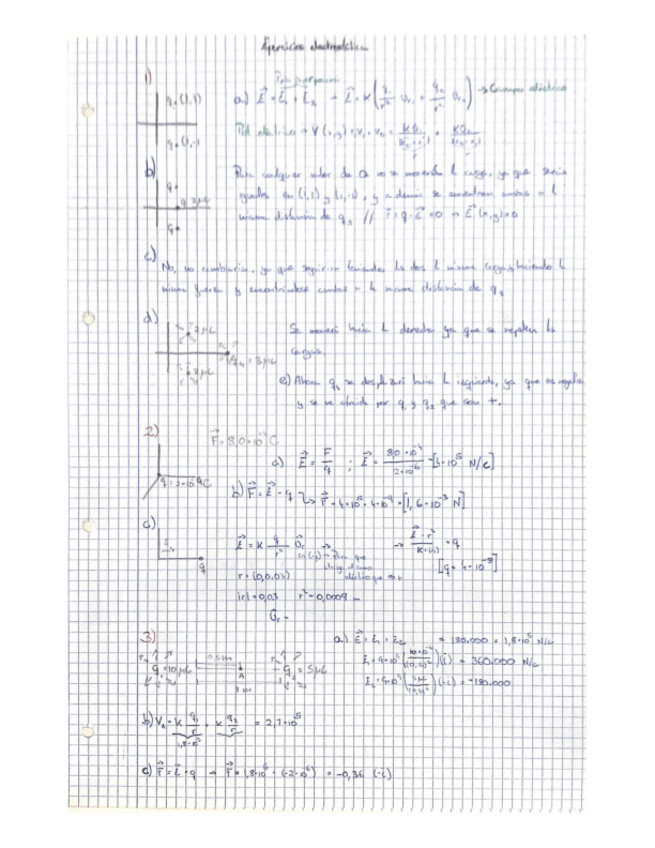 Ejercicios electrostática
1)
Por superposición
q₁(1,1)
a) E = E₁ + E₂ → E = K ( q₁/r² Ur₁ + q₂/r² Ur₂ ) → Campo eléctrico
q₂(1,-1
Pot eléctrico → V(x,y) = V₁ + V₂ =
b)
Para cualquier valor de a no se moverá la carga, ya que sería
iguales en (1,1) y (1,-1), y además se encuentran ambas a la
misma distancia de q₃ // F = q·E = 0 → E(x,y) = 0
c)
No, no cambiaría, ya que seguirían teniendo las dos la misma carga, haciendo la
misma fuerza y encontrándose ambas a la misma distancia de q₃
d)
2 μC
q₄ = 3 μC
2 μC
Se moverá hacia la derecha ya que se repelen las
cargas.
e) Ahora q₄ se desplazará hacia la izquierda, ya que es negativa
y se ve atraída por q₁ y q₂ que son +.
2)
a) E = F/q ; E = = [4·10⁵ N/C]
b) F = E·q → F = 4·10⁵·4·10⁻⁹ = [1,6·10⁻³ N]
c)
E = K q/r² Ur → = q
r = (0,0,03)
[q = 4·10⁻⁸]
|r| = 0,03 r² = 0,0009
Ur =
3)
q = 10 μC
0,5 m
A
q = 5 μC
1 m
a) E = E₁ + E₂ = 180.000 = 1,8·10⁵ N/C
(i) = 360.000 N/C
(-i) = -180.000
b) V_A = K q₁/r + K q₂/r = 2,7·10⁵
1,8·10⁵
c) F = E·q → F = 1,8·10⁵·(-2·10⁻⁶) = -0,36 (-i)